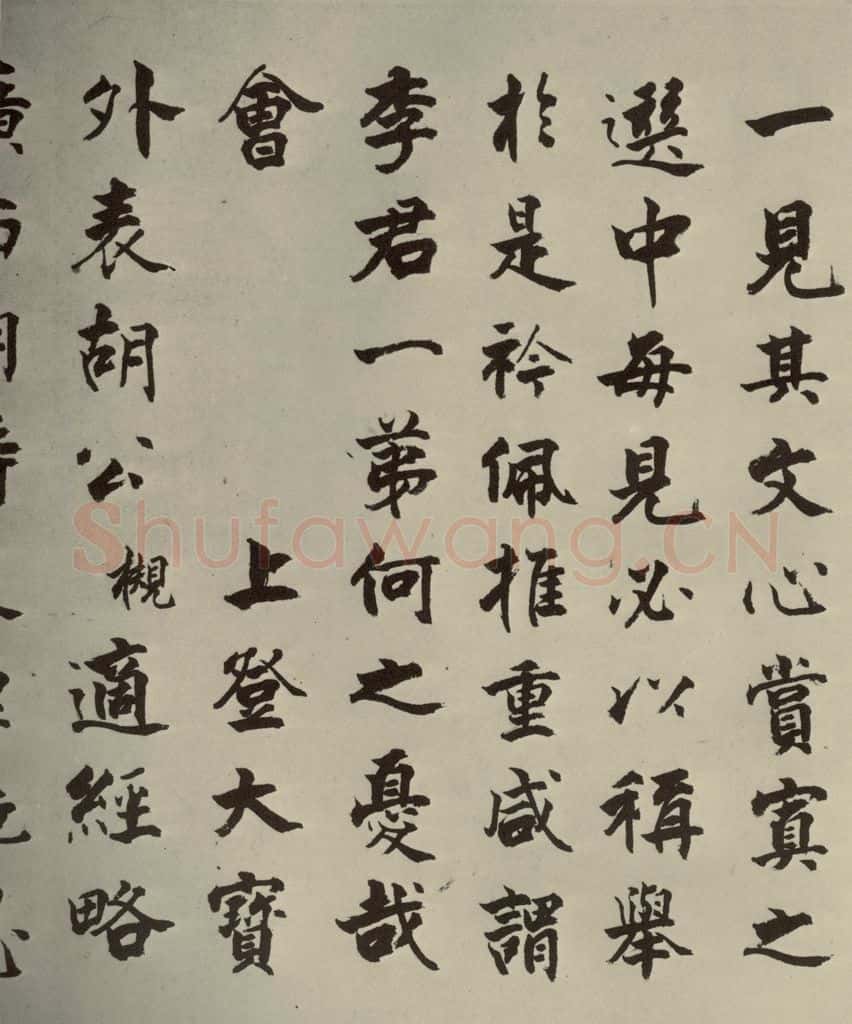 一見其文心賞寘之
選中每見必以稱舉
於是衿佩推重咸謂
李君一第何之憂哉
會上登大寶
外表胡公槻適經略
Shufawang.CN